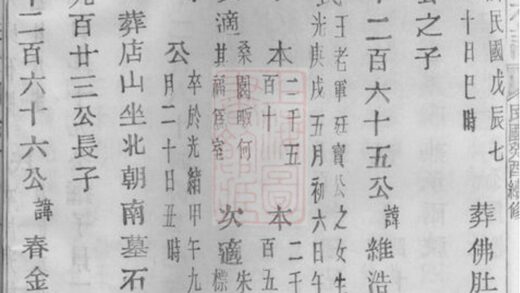 民國癸酉續修
民國戊辰七
十日巳時
葬佛肚
公之子
千二百六十五公
諱維浩
民王老軍旺寶公之女生
光庚戌五月初六日午
本
二千五
百十
本
二千
百五
適
桑園畈何
其福爲室
次適
朱
標
公
卒於光緒甲午九
月二十日丑時
葬店山坐北朝南墓石
九百廿三公長子
千二百六十六公
諱春金